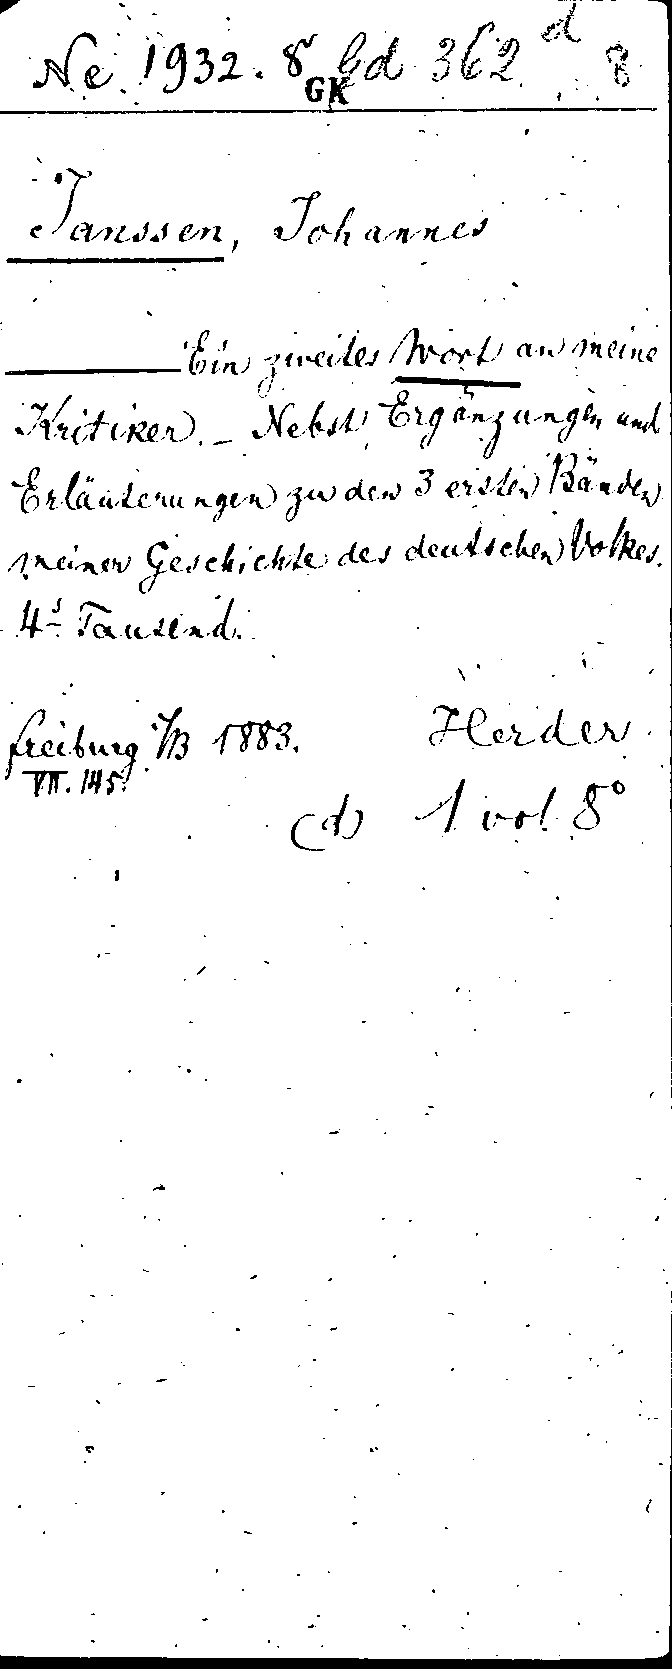 Ne 1932. 8° Gd 362 d 8
GK
Janssen, Johannes
Ein zweites Wort an meine
Kritiker. _ Nebst Ergänzungen und
Erläuterungen zu den 3 ersten Bänden
meiner Geschichte des deutschen Volkes.
4s Tausend.
Freiburg i/B 1883. Herder
VII. 145.
(d) 1 vol 8°